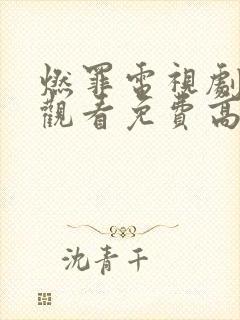 燃罪電視劇
觀看免費高
沈青干